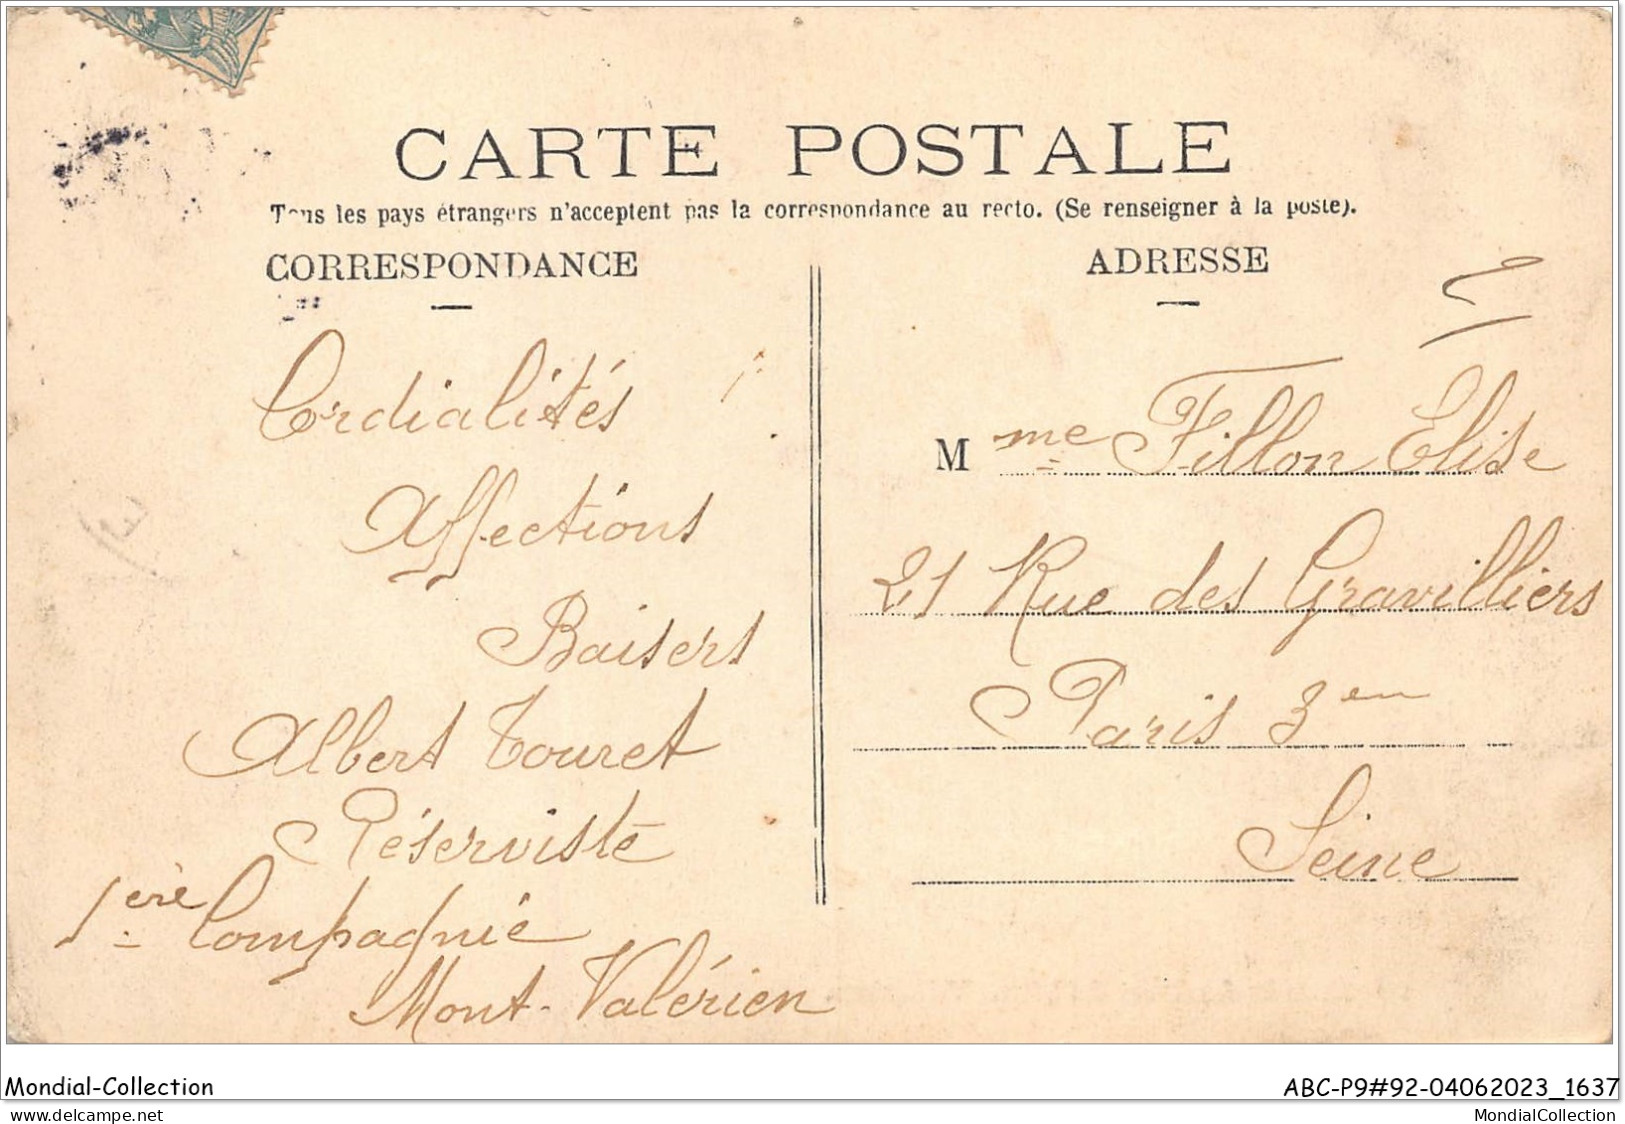 CARTE POSTALE
Tous les pays étrangers n'acceptent pas la correspondance au recto. (Se renseigner à la poste).
CORRESPONDANCE
Cordialités
Affections
Baisers
Albert Touret
Réserviste
1ère Compagnie
Mont-Valérien
ADRESSE
Mme Fillon Elise
21 Rue des Gravilliers
Paris 3en
Seine
Mondial-Collection
ABC-P9#92-04062023_1637
www.delcampe.net
MondialCollection